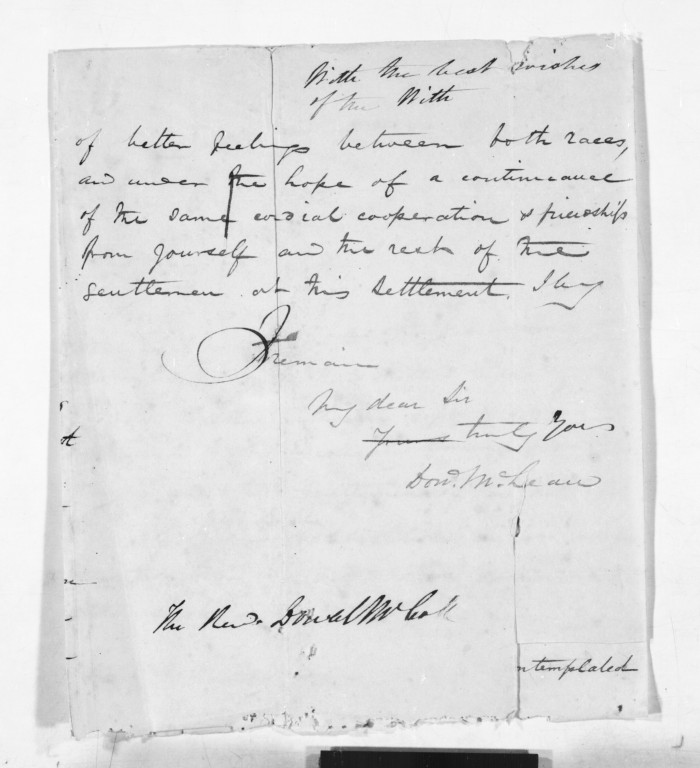 With the best wishes
of the With
of better feelings between both races,
and under the hope of a continuance
of the same cordial cooperation & friendship
from yourself and the rest of the
gentlemen at this Settlement. I beg
to remain
My dear Sir
Yours truly Yours
Dond. McLean
The Revd. Donald McCo
ntemplated